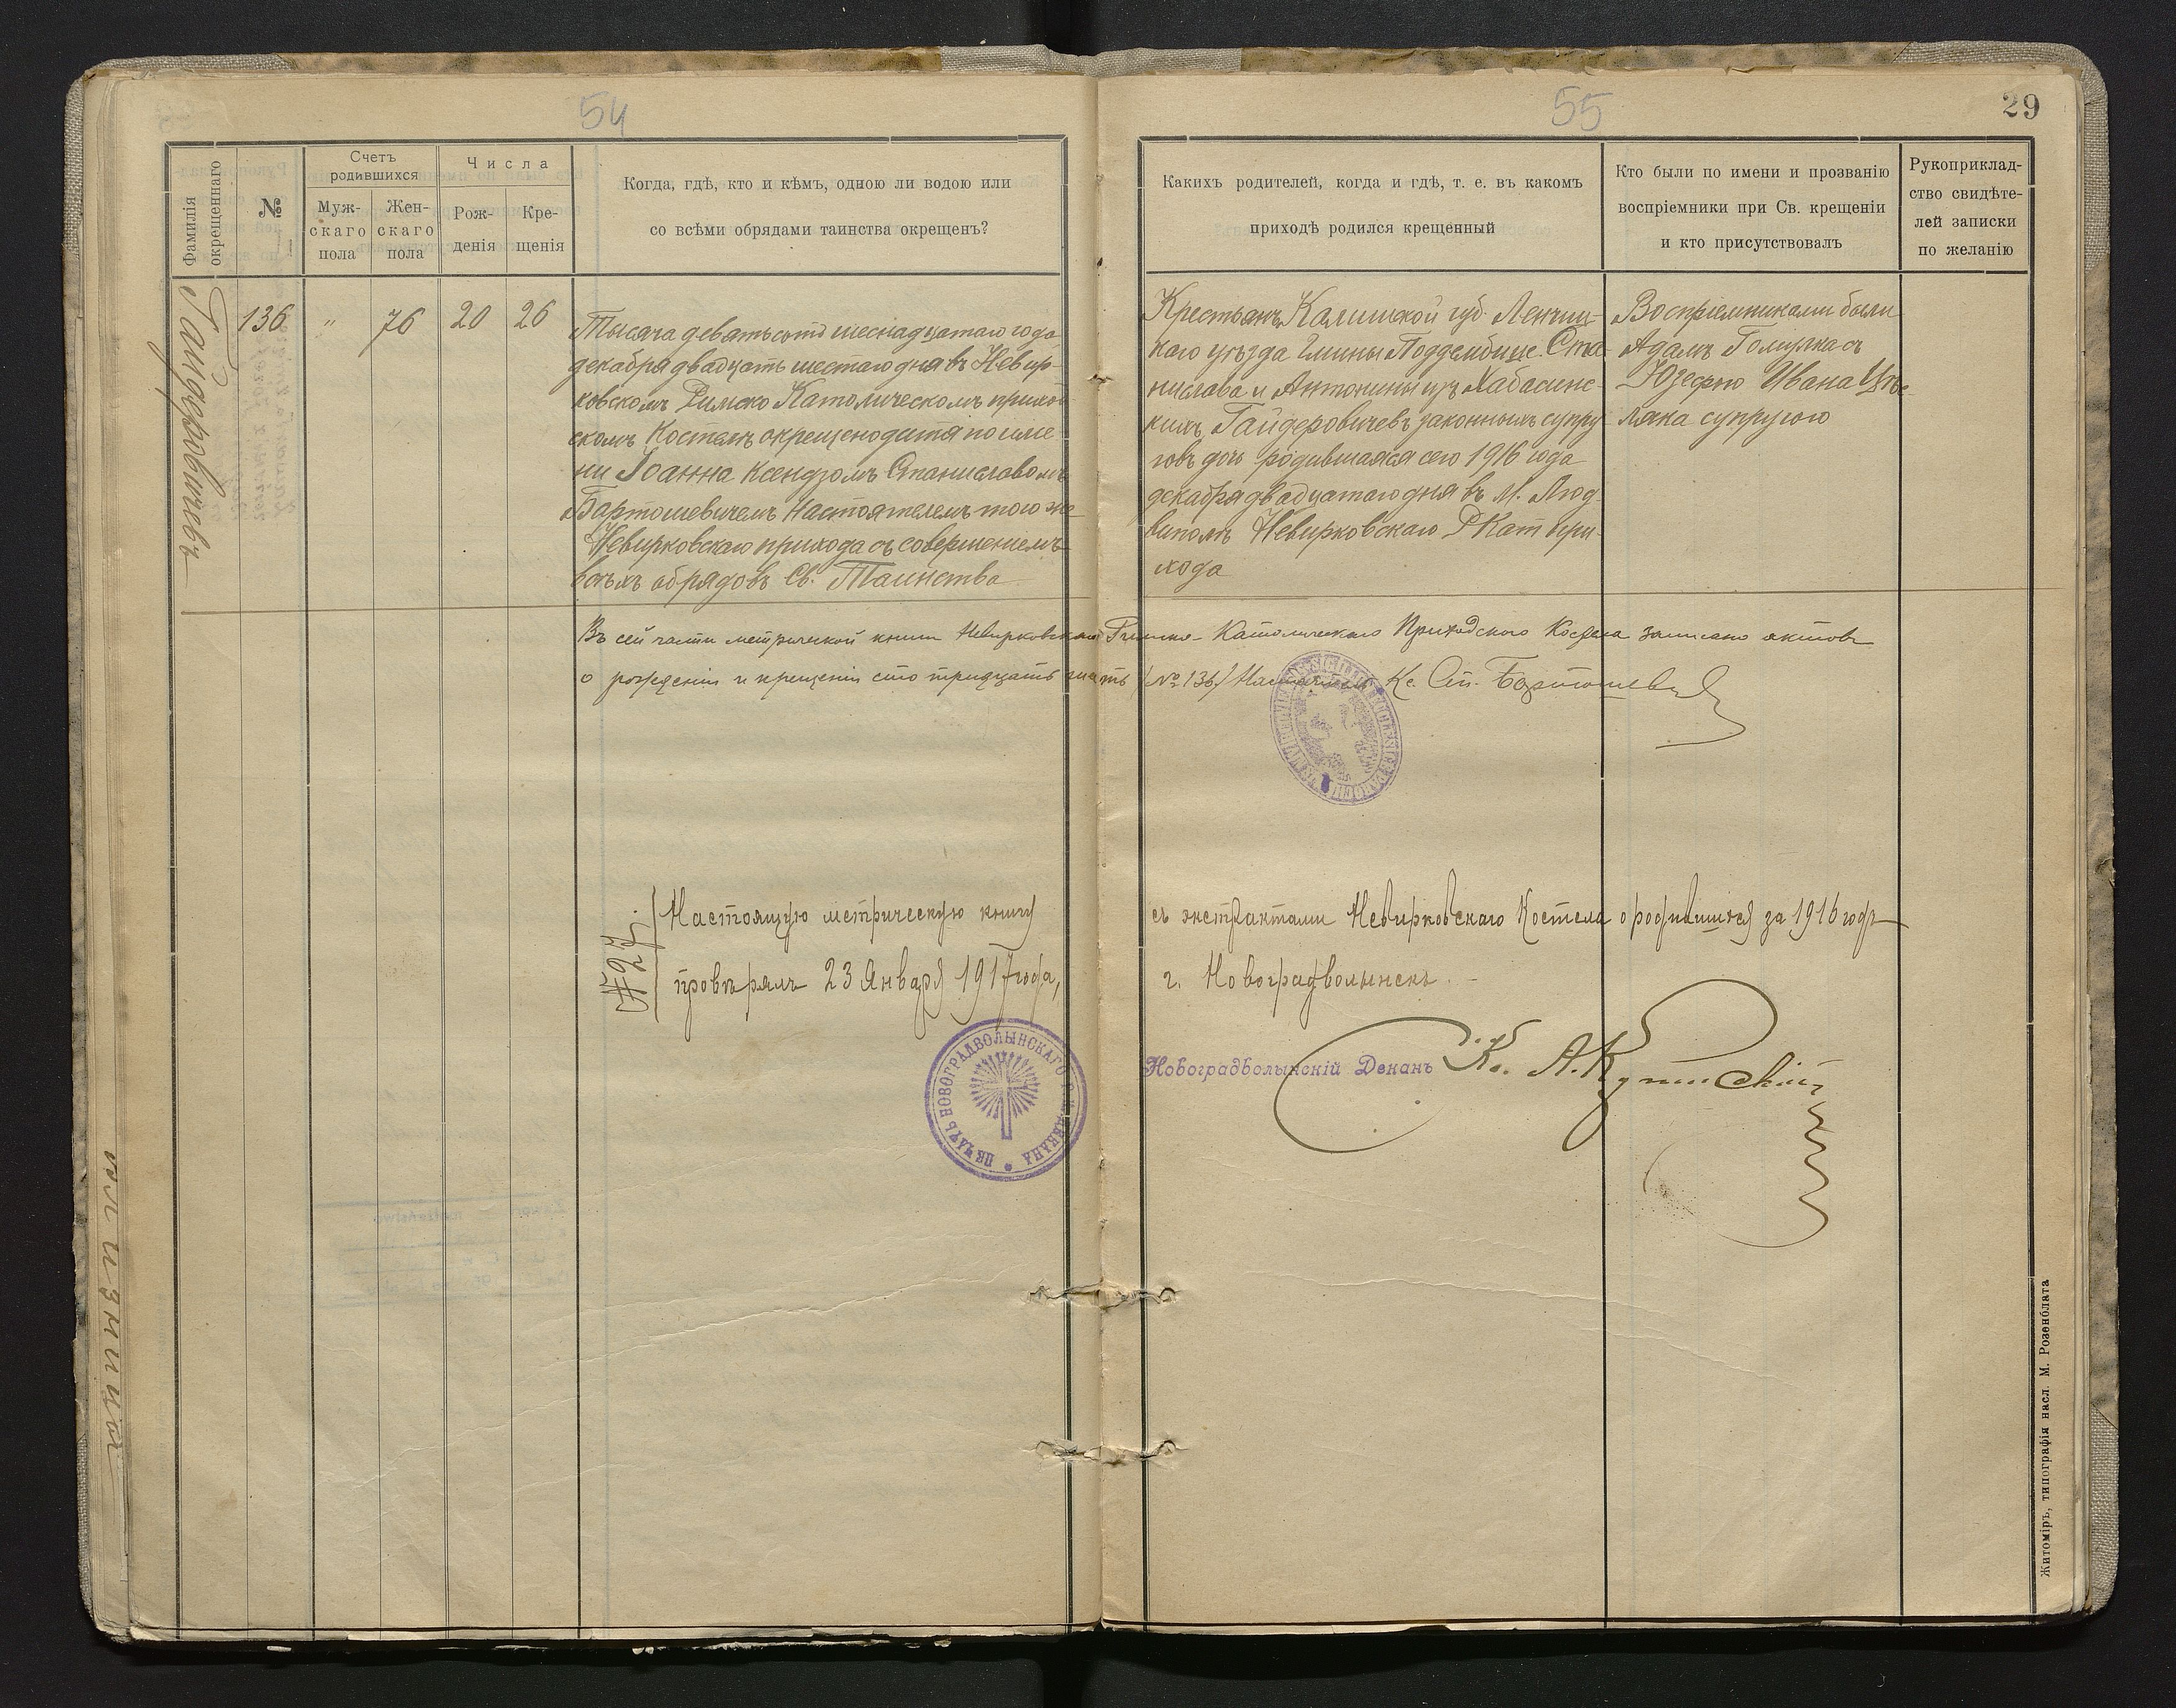 54
55
29
Фамилія
окрещеннаго
№
Счетъ
родившихся
Муж-
скаго
пола
Жен-
скаго
пола
Числа
Рож-
денія
Кре-
щенія
Когда, гдѣ, кто и кѣмъ, одною ли водою или
со всѣми обрядами таинства окрещенъ?
Гайдеровичевъ
136
"
76
20
26
Тысяча девятьсотъ шеснадцатаго года
декабря двадцать шестаго дня въ Невир-
ковскомъ Римско Католическомъ приход
скомъ Костелѣ окрещено дитя по име
ни Іоанна Ксендзомъ Станиславомъ
Бартошевичемъ Настоятелемъ того же
Невирковскаго прихода съ совершеніемъ
всѣхъ обрядовъ Св. Таинства
Какихъ родителей, когда и гдѣ, т. е. въ какомъ
приходѣ родился крещенный
Крестьянъ Калишской губ Ленчиц-
каго уѣзда Гмины Поддембице Ста-
нислава и Антонины изъ Хабасинс-
кихъ Гайдеровичевъ законныхъ супру
говъ дочь родившаяся сего 1916 года
декабря двадцатаго дня въ М. Люд-
виполѣ Невирковскаго Р Кат при-
хода
Кто были по имени и прозванію
воспріемники при Св. крещеніи
и кто присутствовалъ
Воспріемниками были
Адамъ Голи съ
Юзефою Ивана
ляка супругою
Рукоприклад-
ство свидѣте-
лей записки
по желанію
Въ сей части метрической книги Невирковскаго Римско-Католическаго Приходского Костела записано актовъ
о рожденіи и крещеніи сто тридцать шесть (№ 136) Настоятель Кс. Ст. Бартошевичъ
№ 27.
Настоящую метрическую книгу съ экстрактами Невирковскаго Костела о родившихся за 1916 годъ
провѣрялъ 23 Января 1917 года, г. Новоградволынскъ.
ПЕЧАТЬ НОВОГРАДВОЛЫНСКАГО ДЕКАНА
Новоградволынскій Деканъ Кс. А.
Житоміръ, типографія насл. М. Розенблата